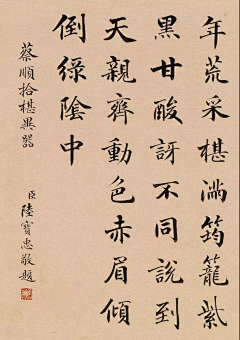 年荒采椹满筠籠紫
黑甘酸訝不同說到
天親齊動色赤眉傾
倒綠陰中
蔡順拾椹異器
臣陸寶忠敬題